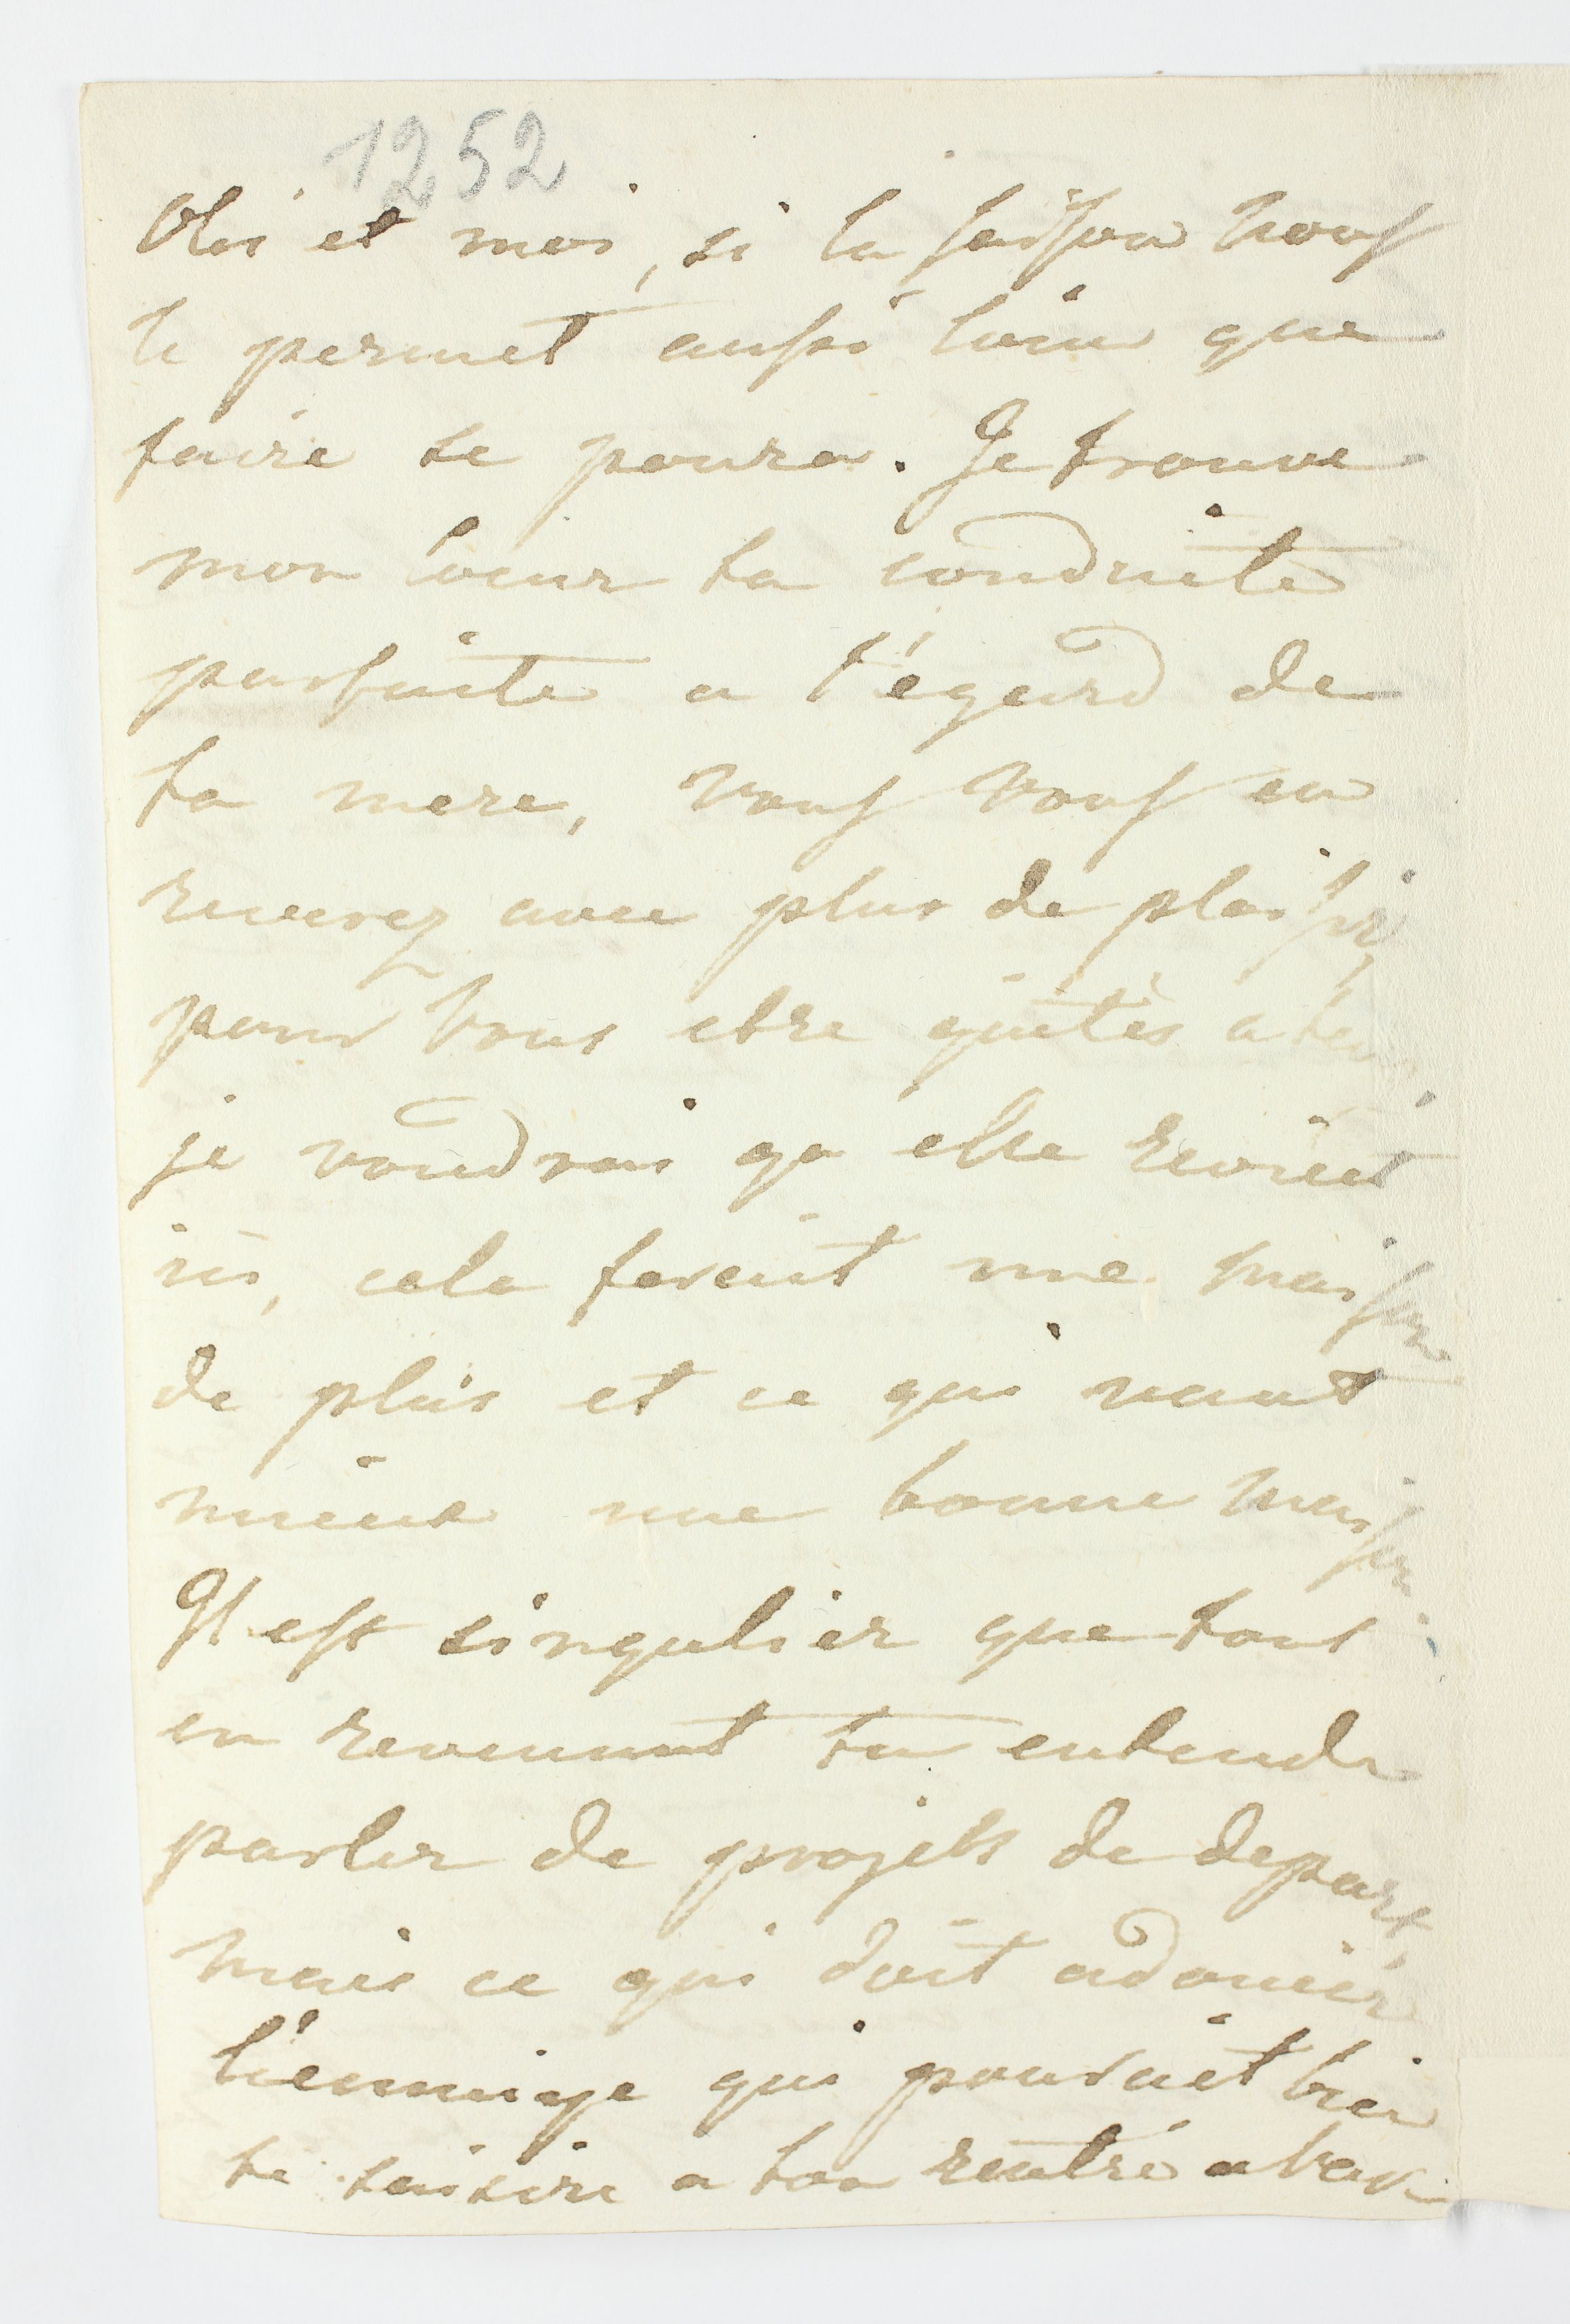 1252
Oli et moi, si la saison nous
le permet aussi loin que
faire se poura. Je trouve
mon coeur ta conduite
parfaite a l'égard de
ta mere, vous vous en
reverez avec plus de plaisir,
pour vous etre quités a tem
je voudrais qu elle revient
ici, cela ferait une maison
de plus et ce qui vaut
mieux une bonne maison.
Il est singulier que tout
en revenant tu entends
parler de projets de depart,
mais ce qui doit adoucir
qui pourait bien
te saisire a ton rentré a